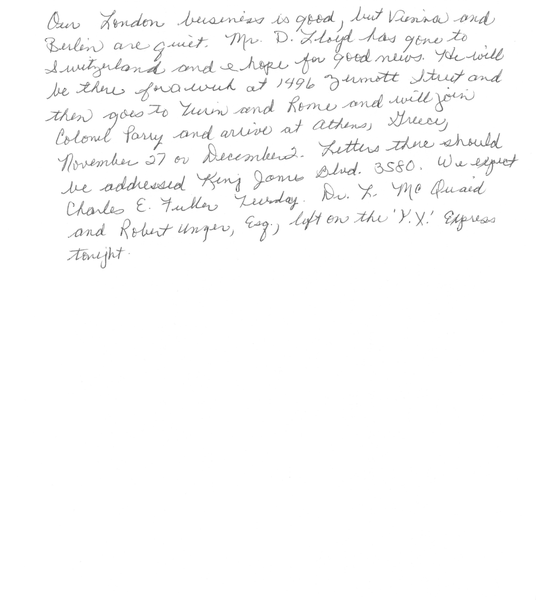 Our London business is good, but Vienna and
Berlin are quiet. Mr. D. Lloyd has gone to
Switzerland and I hope for good news. He will
be there for a week at 1496 Zermott Street and
then goes to Turin and Rome and will join
Colonel Parry and arrive at Athens, Greece,
November 27 or December 2. Letters there should
be addressed King James Blvd. 3580. We expect
Charles E. Fuller Tuesday. Dr. L. McQuaid
and Robert Unger, Esq., left on the 'Y.X.' Express
tonight.